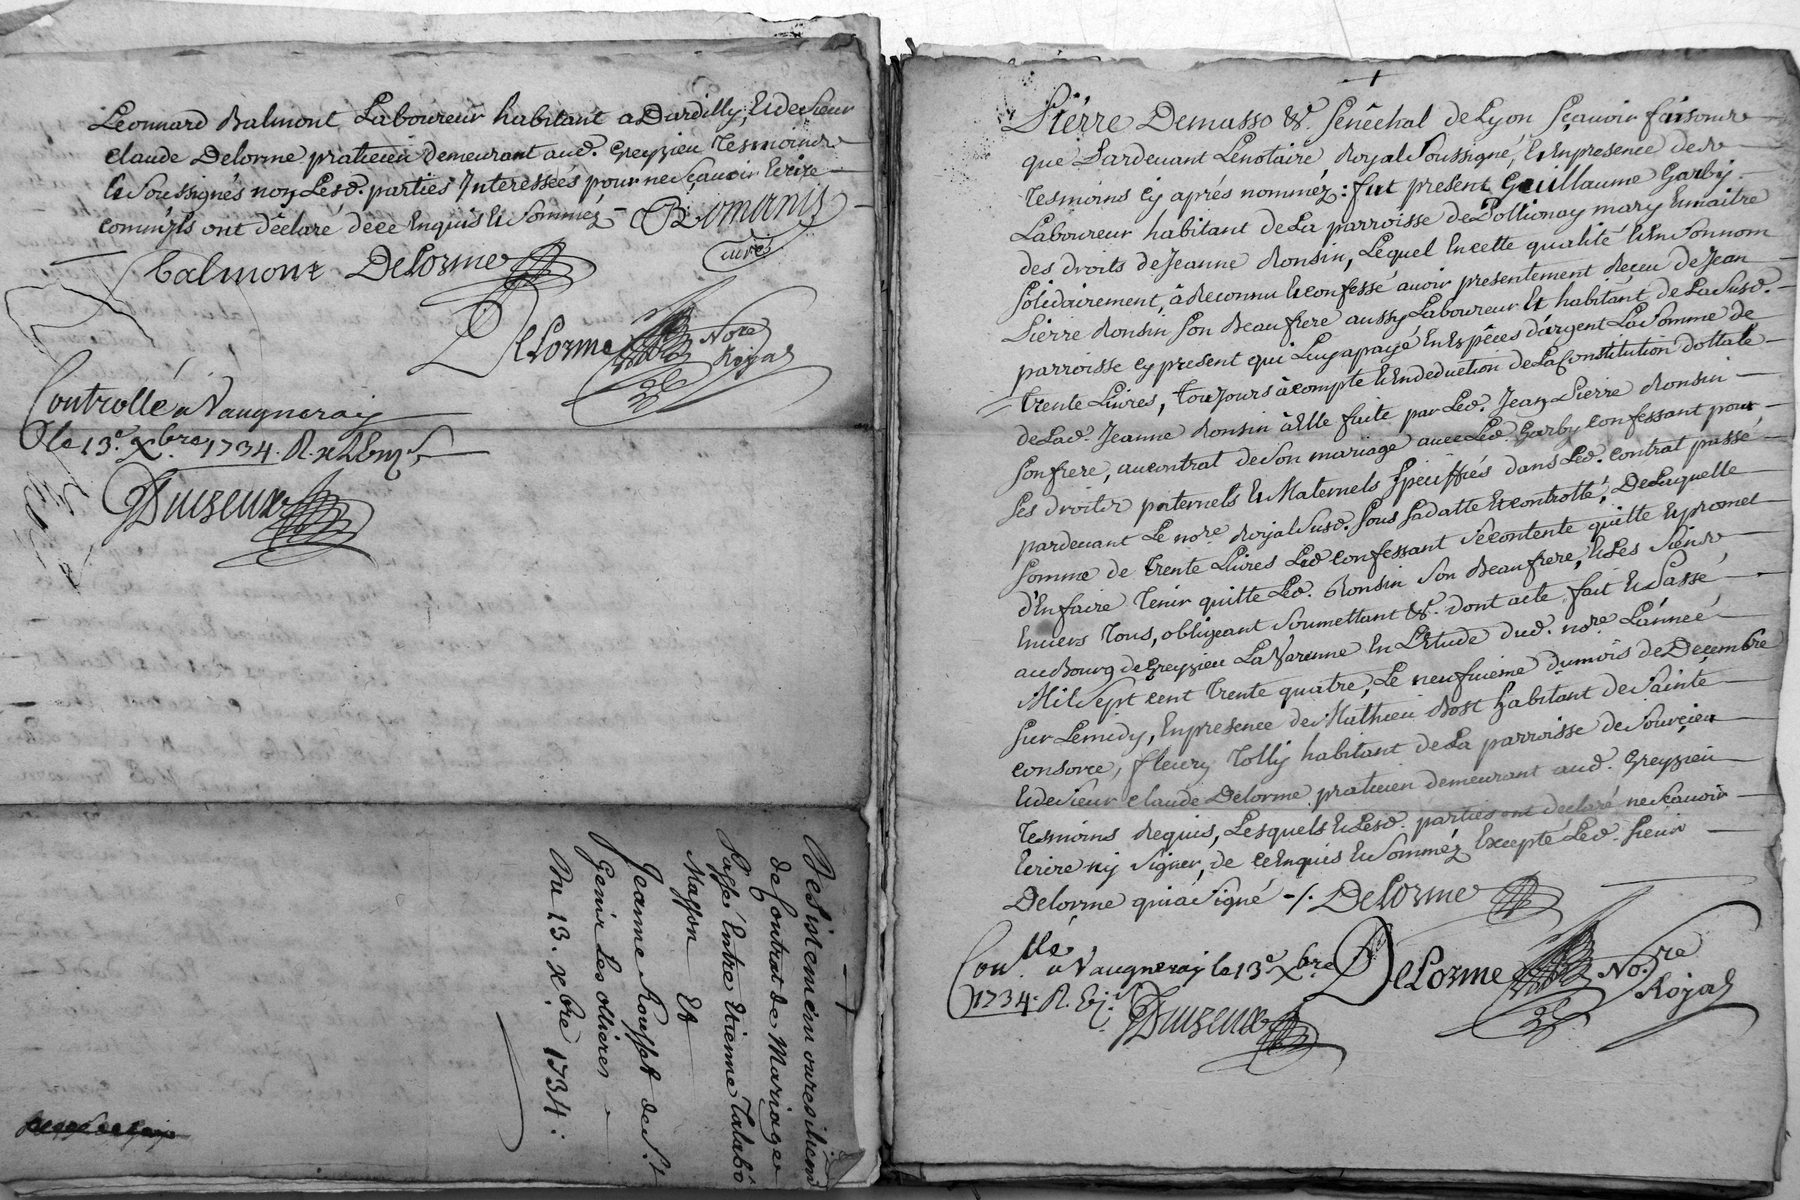 Leonnard Balmont Laboureur habitant a Dardilly, Et de Sieur
claude Delorme praticien demeurant aud. Greyzieu Tesmoins
Soussignés non Lesd. parties Interessées pour ne Sçauoir Ecrire
comm'ils ont déclaré de ce Enquis Et Sommés - Romanis
curé
balmont Delorme
Delorme Nore
Roial
Controllé a Vaugneray
le 13e Xbre 1734. R.
Duizeux
Desistement ou resiliem
de Contrat de Mariage
Passé Entre Etienne Talabó
Masson Et
Jeanne Rousset de St
Genis Les ollieres
Du 13. xbre 1734.
Pierre Demasso &. Senêchal de Lyon Sçauoir faisons
que Pardeuant Le notaire Royal Soussigné, Et En presence des
Tesmoins Cy aprés nommèz : fut present Guillaume Garby
Laboureur habitant de La parroisse de Pollionay mary Et maitre
des droits de Jeanne Ronsin, Lequel En cette qualité Et En Son nom
Solidairement, à Reconnu Et confessé auoir presentement Reçeu de Jean
Pierre Ronsin Son Beaufrere aussy Laboureur Et habitant de La Susd.
parroisse cy present qui Luy a payé En Espêces d'argent La Somme de
trente Liures, toujours à compte Et En deduction de La Constitution dottale
de Lad. Jeanne Ronsin à Elle faite par Led. Jean Pierre Ronsin
Son frere, au contrat de Son mariage auec Led. Garby confessant pour
Ses droits paternels Et Maternels Speciffiés dans Led. contrat passé
pardeuant Le nore Royal Susd. Sous Sa datte Et controllé, De Laquelle
Somme de trente Liures Led confessant Se contente quitte Et promet
d'En faire Tenir quitte Led. Ronsin Son Beaufrere, Et Les Siens
Enuers Tous, obligeant Soumettant &. dont acte fait Et Passé
au Bourg de Greyzieu La Varenne En L'Etude dud. nore L'année
Mil Sept cent trente quatre, Le neufuieme du mois de Decembre
Sur Le midy, En presence de Mathieu Bost habitant de Sainte
Consorce, fleury Tolly habitant de La parroisse de Sourcieu
Et de Sieur claude Delorme praticien demeurant aud. Greyzieu
Tesmoins Requis, Lesquels Et Lesd. parties ont declaré ne Scauoir
Ecrire ny Signer, de ce Enquis Et Sommèz Excepté Led. Sieur
Delorme qui a Signé -/. Delorme
Conllé a Vaugneray le 13e Xbre Delorme Nore
1734. R. Roial
Duizeux